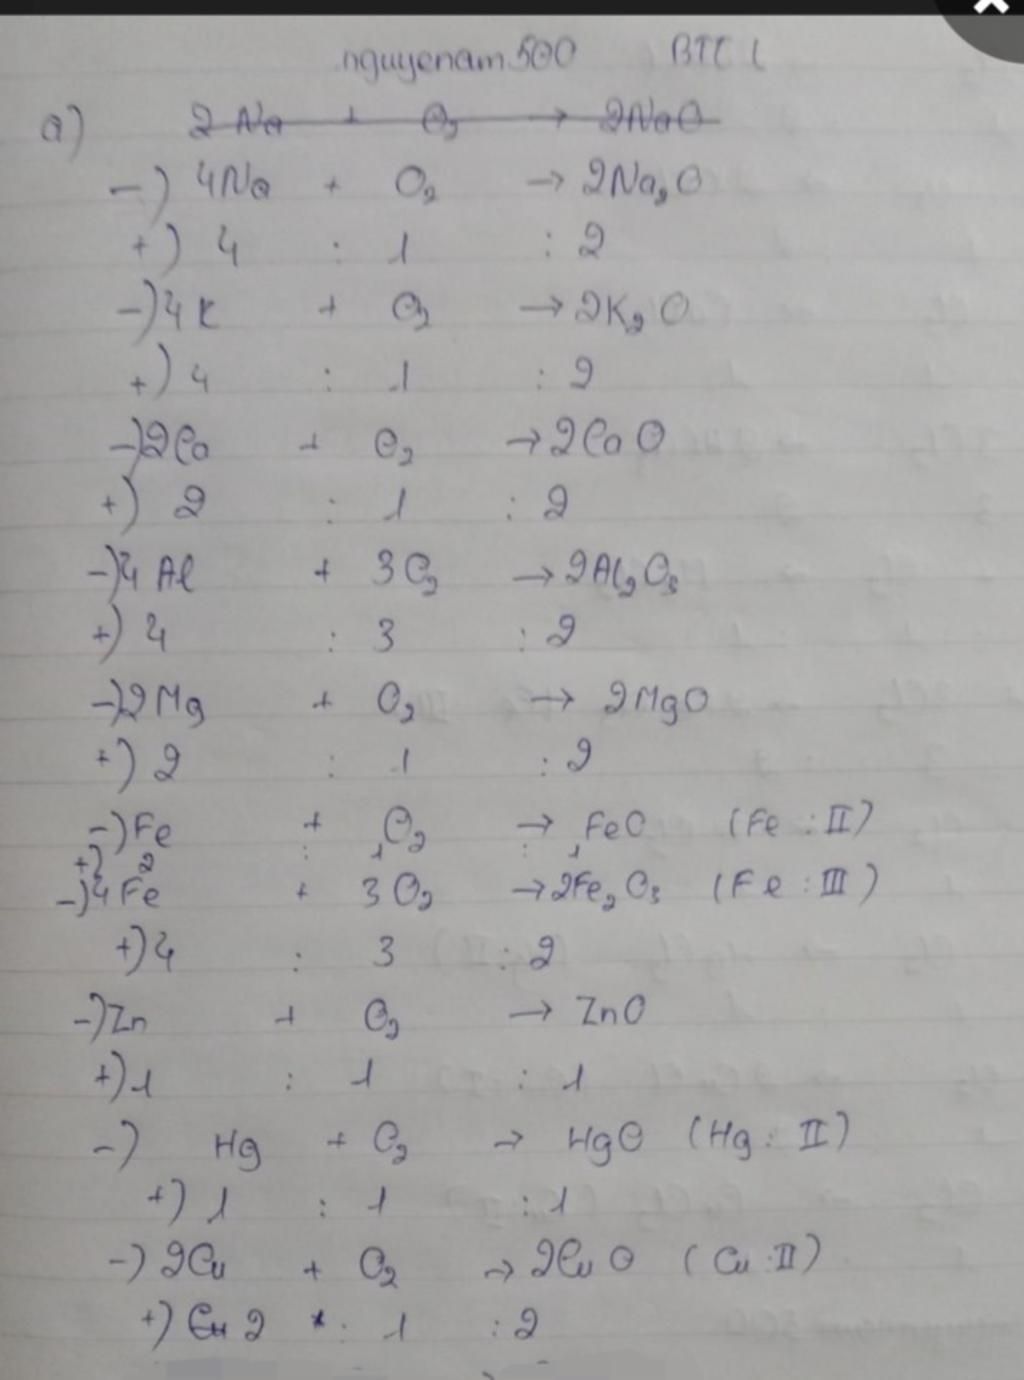 nguyenam500 BTC L
a) 2Na + O₂ → 2NaO
-) 4Na + O₂ → 2Na₂O
+) 4 : 1 : 2
-) 4K + O₂ → 2K₂O
+) 4 : 1 : 2
-) 2Ca + O₂ → 2CaO
+) 2 : 1 : 2
-) 4Al + 3O₂ → 2Al₂O₃
+) 4 : 3 : 2
-) 2Mg + O₂ → 2MgO
+) 2 : 1 : 2
-) Fe + O₂ → FeO (Fe : II)
+) 2 : 1 : 1
-) 4Fe + 3O₂ → 2Fe₂O₃ (Fe : III)
+) 4 : 3 : 2
-) Zn + O₂ → ZnO
+) 1 : 1 : 1
-) Hg + O₂ → HgO (Hg : II)
+) 1 : 1 : 1
-) 2Cu + O₂ → 2CuO (Cu : II)
+) Cu 2 : 1 : 2